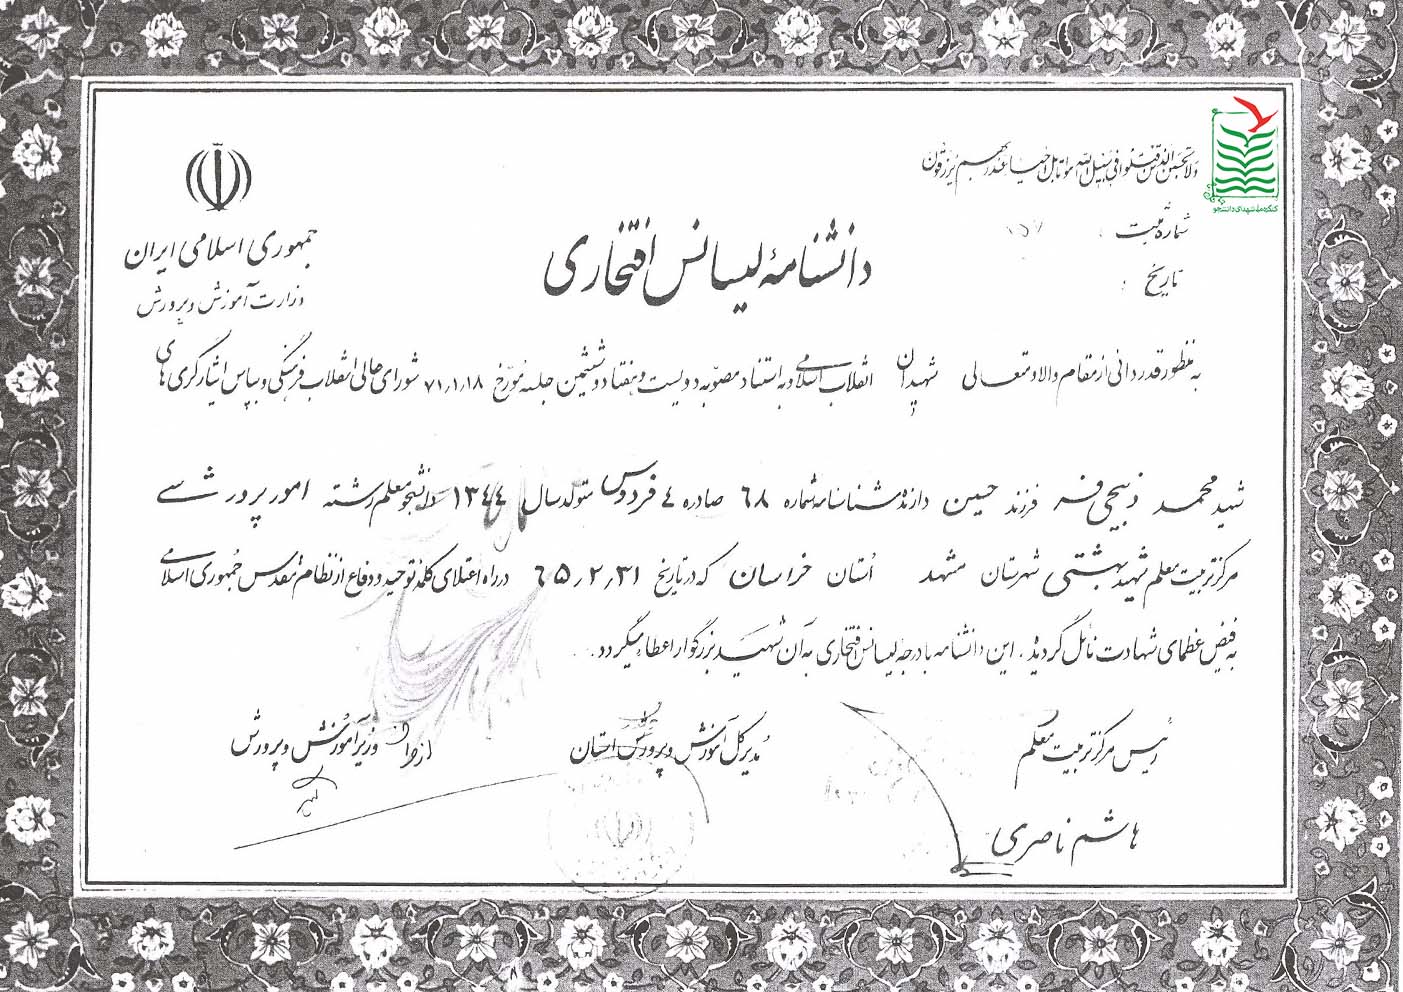 ولا تحسبن الذین قتلوا فی سبیل الله امواتا بل احیاء عند ربهم یرزقون
کنگره ملی شهدای دانشجو
شماره ثبت :
تاریخ :
جمهوری اسلامی ایران
وزارت آموزش و پرورش
دانشنامهٔ لیسانس افتخاری
به منظور قدردانی از مقام والا و متعالی شهیدان انقلاب اسلامی و به استناد مصوبه دویست و هفتاد و ششمین جلسه مورخ ۷۱,۱,۱۸ شورای عالی انقلاب فرهنگی و بپاس ایثارگری های
شهید محمد ذبیحی فر فرزند حسین دارنده شناسنامه شماره ۶۸ صادره از فردوس متولد سال ۱۳۴۴ دانشجو معلم رشته امور پرورشی
مرکز تربیت معلم شهید بهشتی شهرستان مشهد استان خراسان که در تاریخ ۶۵,۲,۳۱ در راه اعتلای کلمه توحید و دفاع از نظام مقدس جمهوری اسلامی
به فیض عظمای شهادت نائل گردید. این دانشنامه با درجه لیسانس افتخاری به آن شهید بزرگوار اعطاء میگردد.
رئیس مرکز تربیت معلم
مدیر کل آموزش و پرورش استان
وزیر آموزش و پرورش
هاشم ناصری